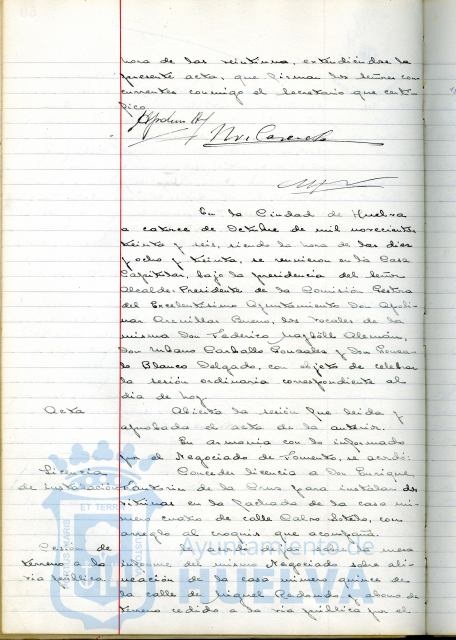 hora de las veintiuna, extendiéndose la
presente acta, que firman los señores con-
currentes conmigo el Secretario que certi-
fico.
En la Ciudad de Huelva
a catorce de Octubre de mil novecientos
treinta y seis, siendo la hora de las diez
y ocho y treinta, se reunieron en la Casa
Capitular, bajo la presidencia del señor
Alcalde-Presidente de la Comisión Gestora
del Excelentísimo Ayuntamiento Don Apoli-
nar Arenillas Bueno, los vocales de la
misma Don Federico Alemán,
Don Urbano Carballo Gonzalez y Don Gonza-
lo Blanco Delgado, con objeto de celebrar
la sesión ordinaria correspondiente al
día de hoy.
Acta Abierta la sesión fue leida y
aprobada el acta de la anterior.
En armonia con lo informado
por el Negociado de Fomento, se acordó:
Licencia Conceder licencia a Don Enrique
de instalación de la Cruz para instalar dos
vitrinas en la fachada de la casa nú-
mero cuatro de calle Calvo Sotelo, con
arreglo al croquis que acompaña.
Cesión de
terreno a la informe del mismo Negociado sobre ali-
via pública. neación de la casa número quince de
la calle de Miguel Redondo y abono de
terreno cedido a la via pública por el
Ayuntamiento de
HUELVA